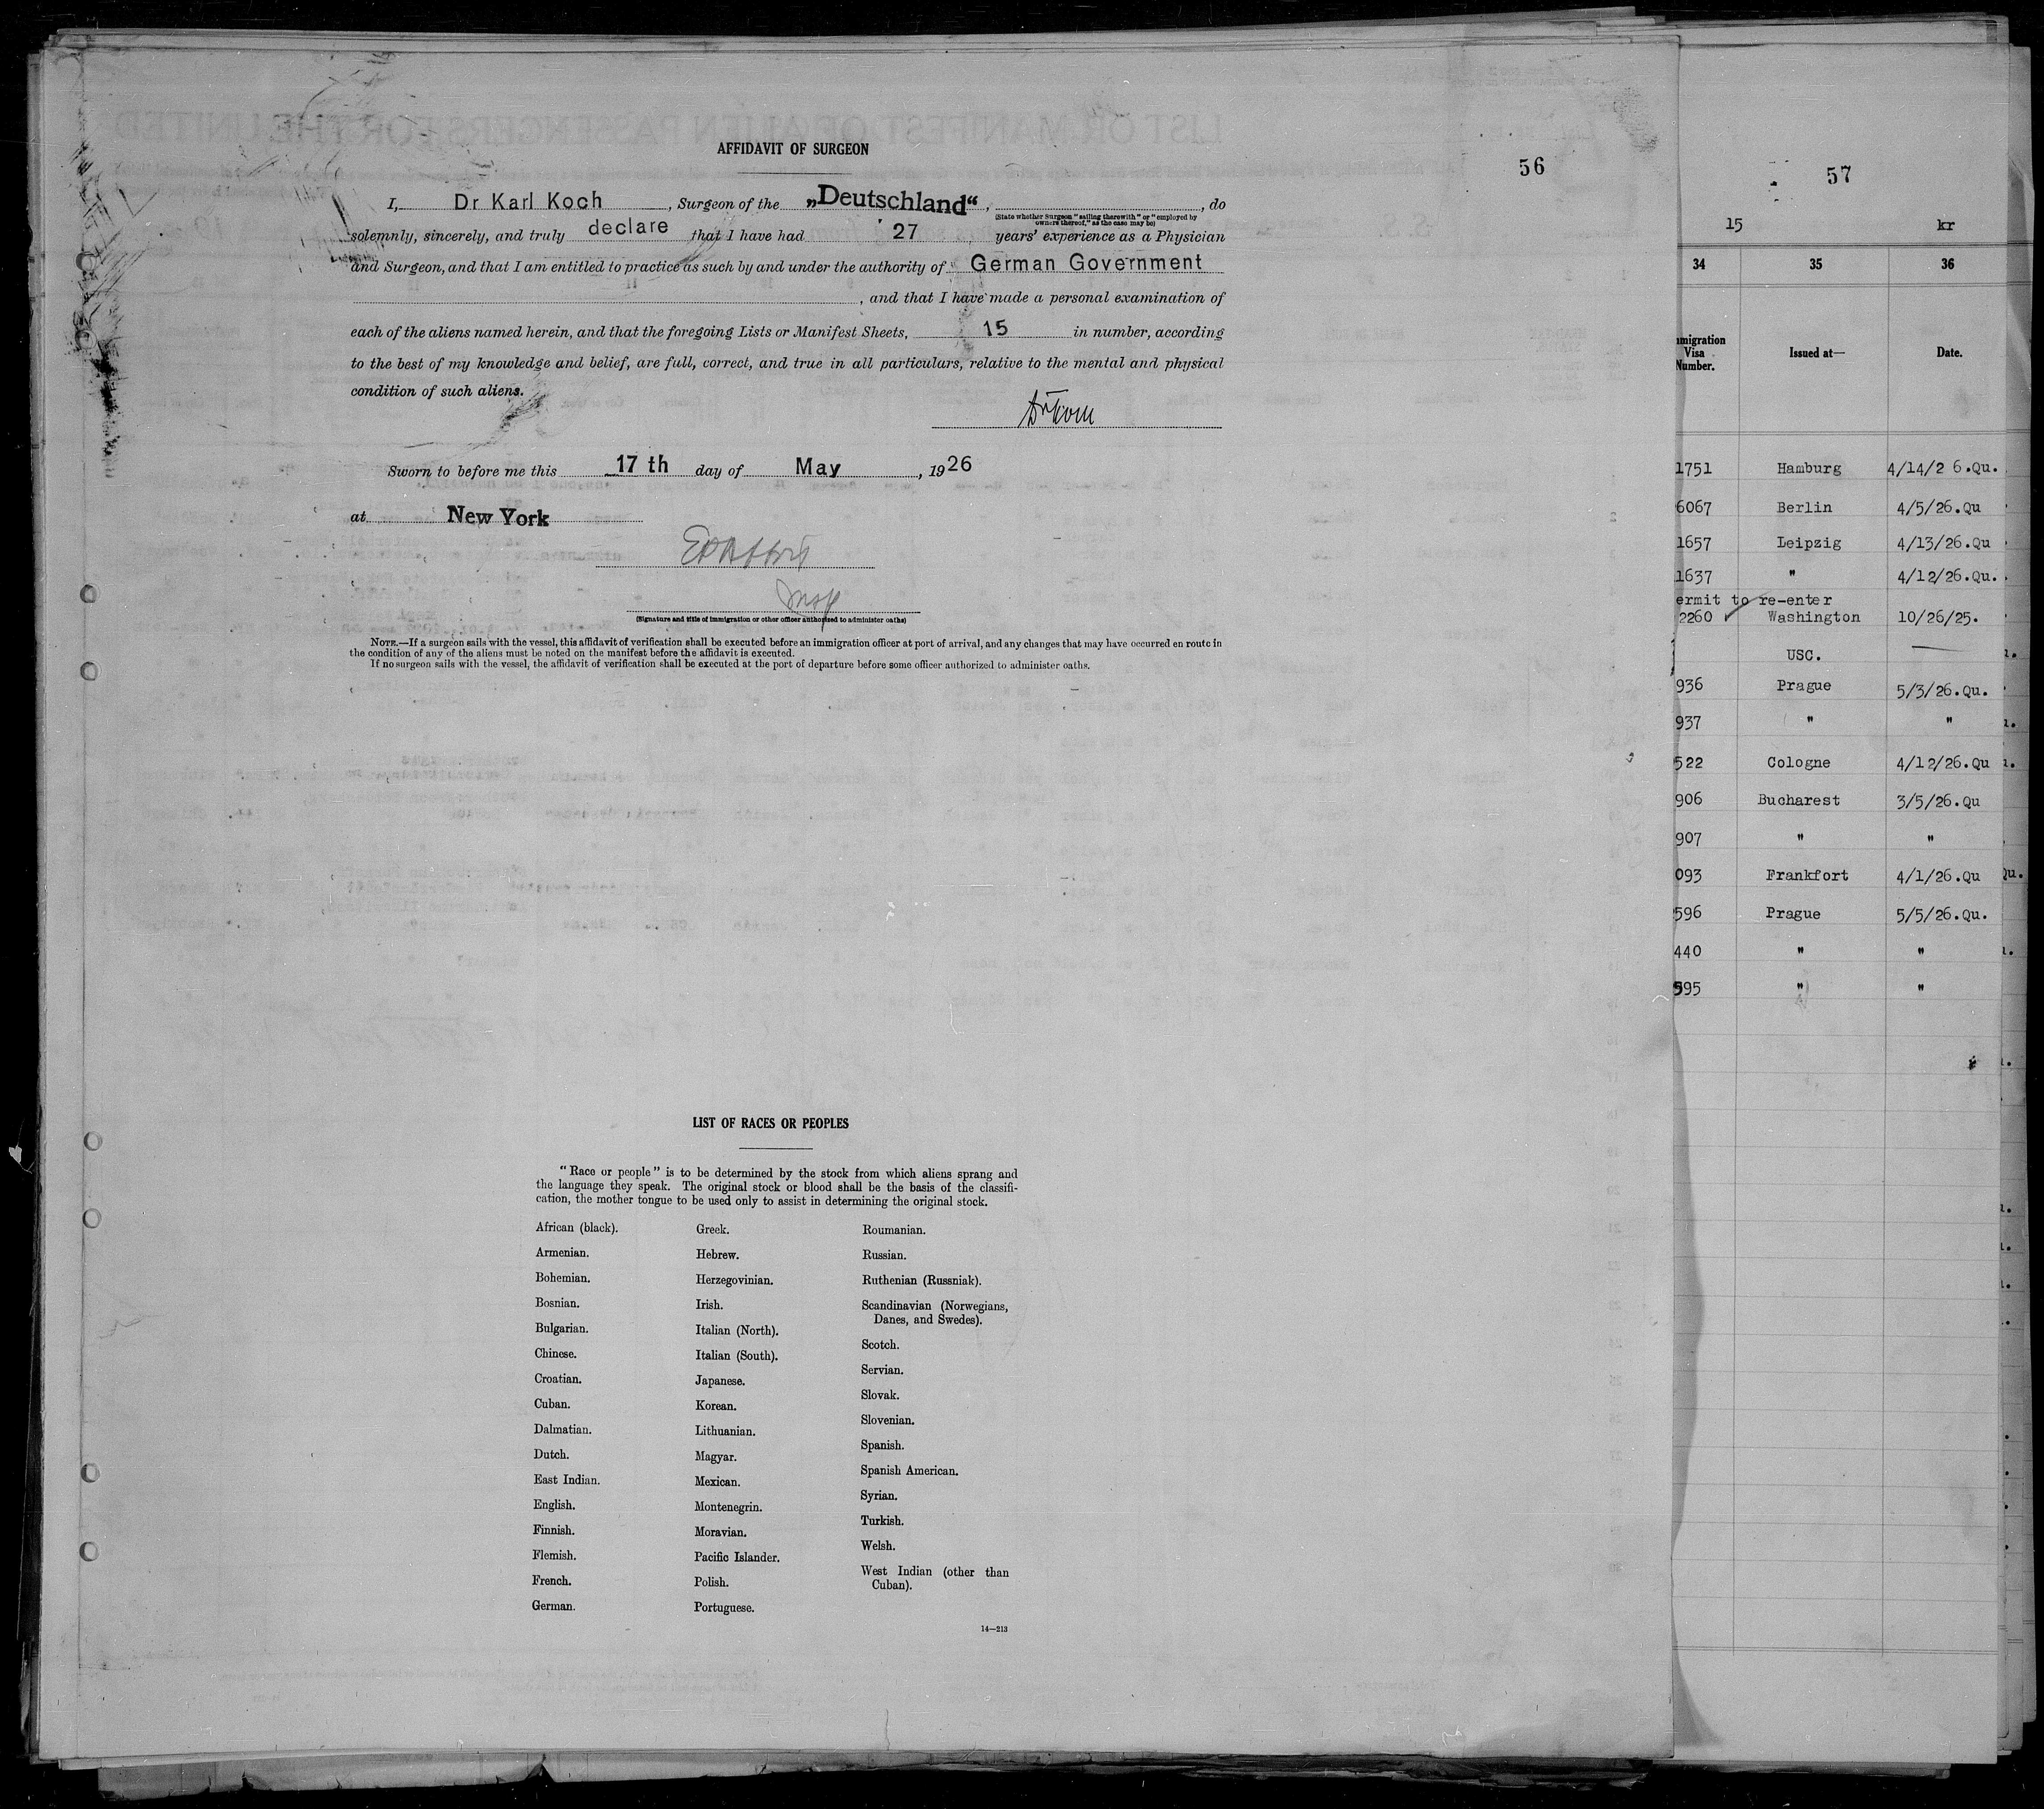 AFFIDAVIT OF SURGEON
56
I, Dr Karl Koch, Surgeon of the „Deutschland“, , do
(State whether Surgeon "sailing therewith" or "employed by
owners thereof," as the case may be)
solemnly, sincerely, and truly declare that I have had 27 years' experience as a Physician
and Surgeon, and that I am entitled to practice as such by and under the authority of German Government
, and that I have made a personal examination of
each of the aliens named herein, and that the foregoing Lists or Manifest Sheets, 15 in number, according
to the best of my knowledge and belief, are full, correct, and true in all particulars, relative to the mental and physical
condition of such aliens.
Sworn to before me this 17 th day of May, 1926
at New York
Insp
(Signature and title of immigration or other officer authorized to administer oaths)
NOTE.—If a surgeon sails with the vessel, this affidavit of verification shall be executed before an immigration officer at port of arrival, and any changes that may have occurred en route in
the condition of any of the aliens must be noted on the manifest before the affidavit is executed.
If no surgeon sails with the vessel, the affidavit of verification shall be executed at the port of departure before some officer authorized to administer oaths.
LIST OF RACES OR PEOPLES
"Race or people" is to be determined by the stock from which aliens sprang and
the language they speak. The original stock or blood shall be the basis of the classifi-
cation, the mother tongue to be used only to assist in determining the original stock.
African (black).
Armenian.
Bohemian.
Bosnian.
Bulgarian.
Chinese.
Croatian.
Cuban.
Dalmatian.
Dutch.
East Indian.
English.
Finnish.
Flemish.
French.
German.
Greek.
Hebrew.
Herzegovinian.
Irish.
Italian (North).
Italian (South).
Japanese.
Korean.
Lithuanian.
Magyar.
Mexican.
Montenegrin.
Moravian.
Pacific Islander.
Polish.
Portuguese.
Roumanian.
Russian.
Ruthenian (Russniak).
Scandinavian (Norwegians,
Danes, and Swedes).
Scotch.
Servian.
Slovak.
Slovenian.
Spanish.
Spanish American.
Syrian.
Turkish.
Welsh.
West Indian (other than
Cuban).
14—213
57
15 kr
34 35 36
mmigration
Visa
Number.
Issued at—
Date.
1751 Hamburg 4/14/2 6.Qu.
6067 Berlin 4/5/26.Qu
1657 Leipzig 4/13/26.Qu
1637 " 4/12/26.Qu.
ermit to re-enter
2260 Washington 10/26/25.
USC. —
936 Prague 5/3/26.Qu.
937 " "
522 Cologne 4/12/26.Qu
906 Bucharest 3/5/26.Qu
907 " "
093 Frankfort 4/1/26.Qu
596 Prague 5/5/26.Qu.
440 " "
595 " "